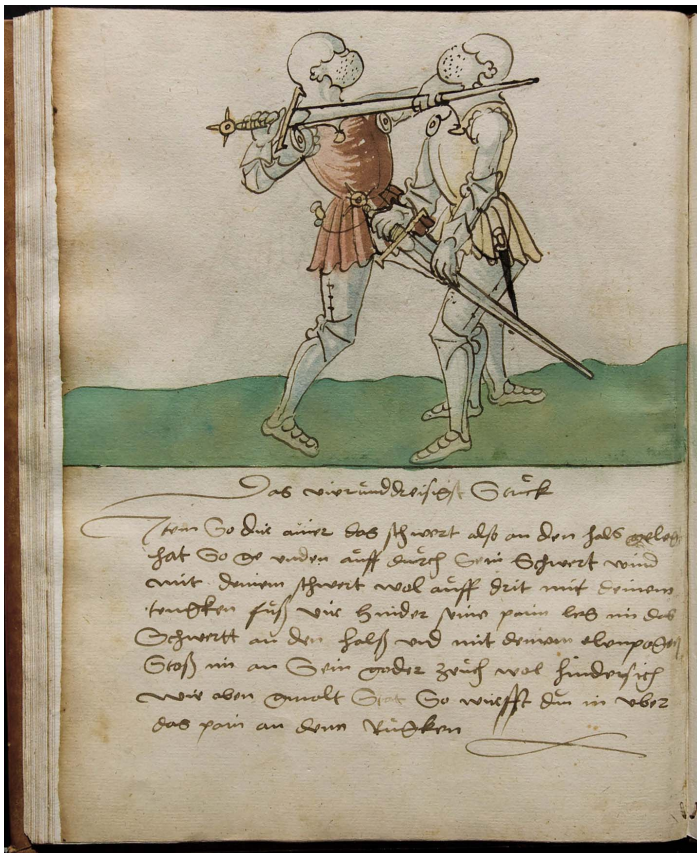 Das vierunddreisigst Stuck
Item So dir ainer das schwert also an den hals gelegt
hat So ge unden auff durch Sein Schwert wind
mit deinem schwert wol auff drit mit deinem
tencken fuß vir hinder seine pain leg im das
Schwertt an den halß und mit deinem elenpogen
Stoß in an Sein goder zeuch wol hindersich
wie oben gmalt Stat So wirffst du in uber
das pain an denn Rugken